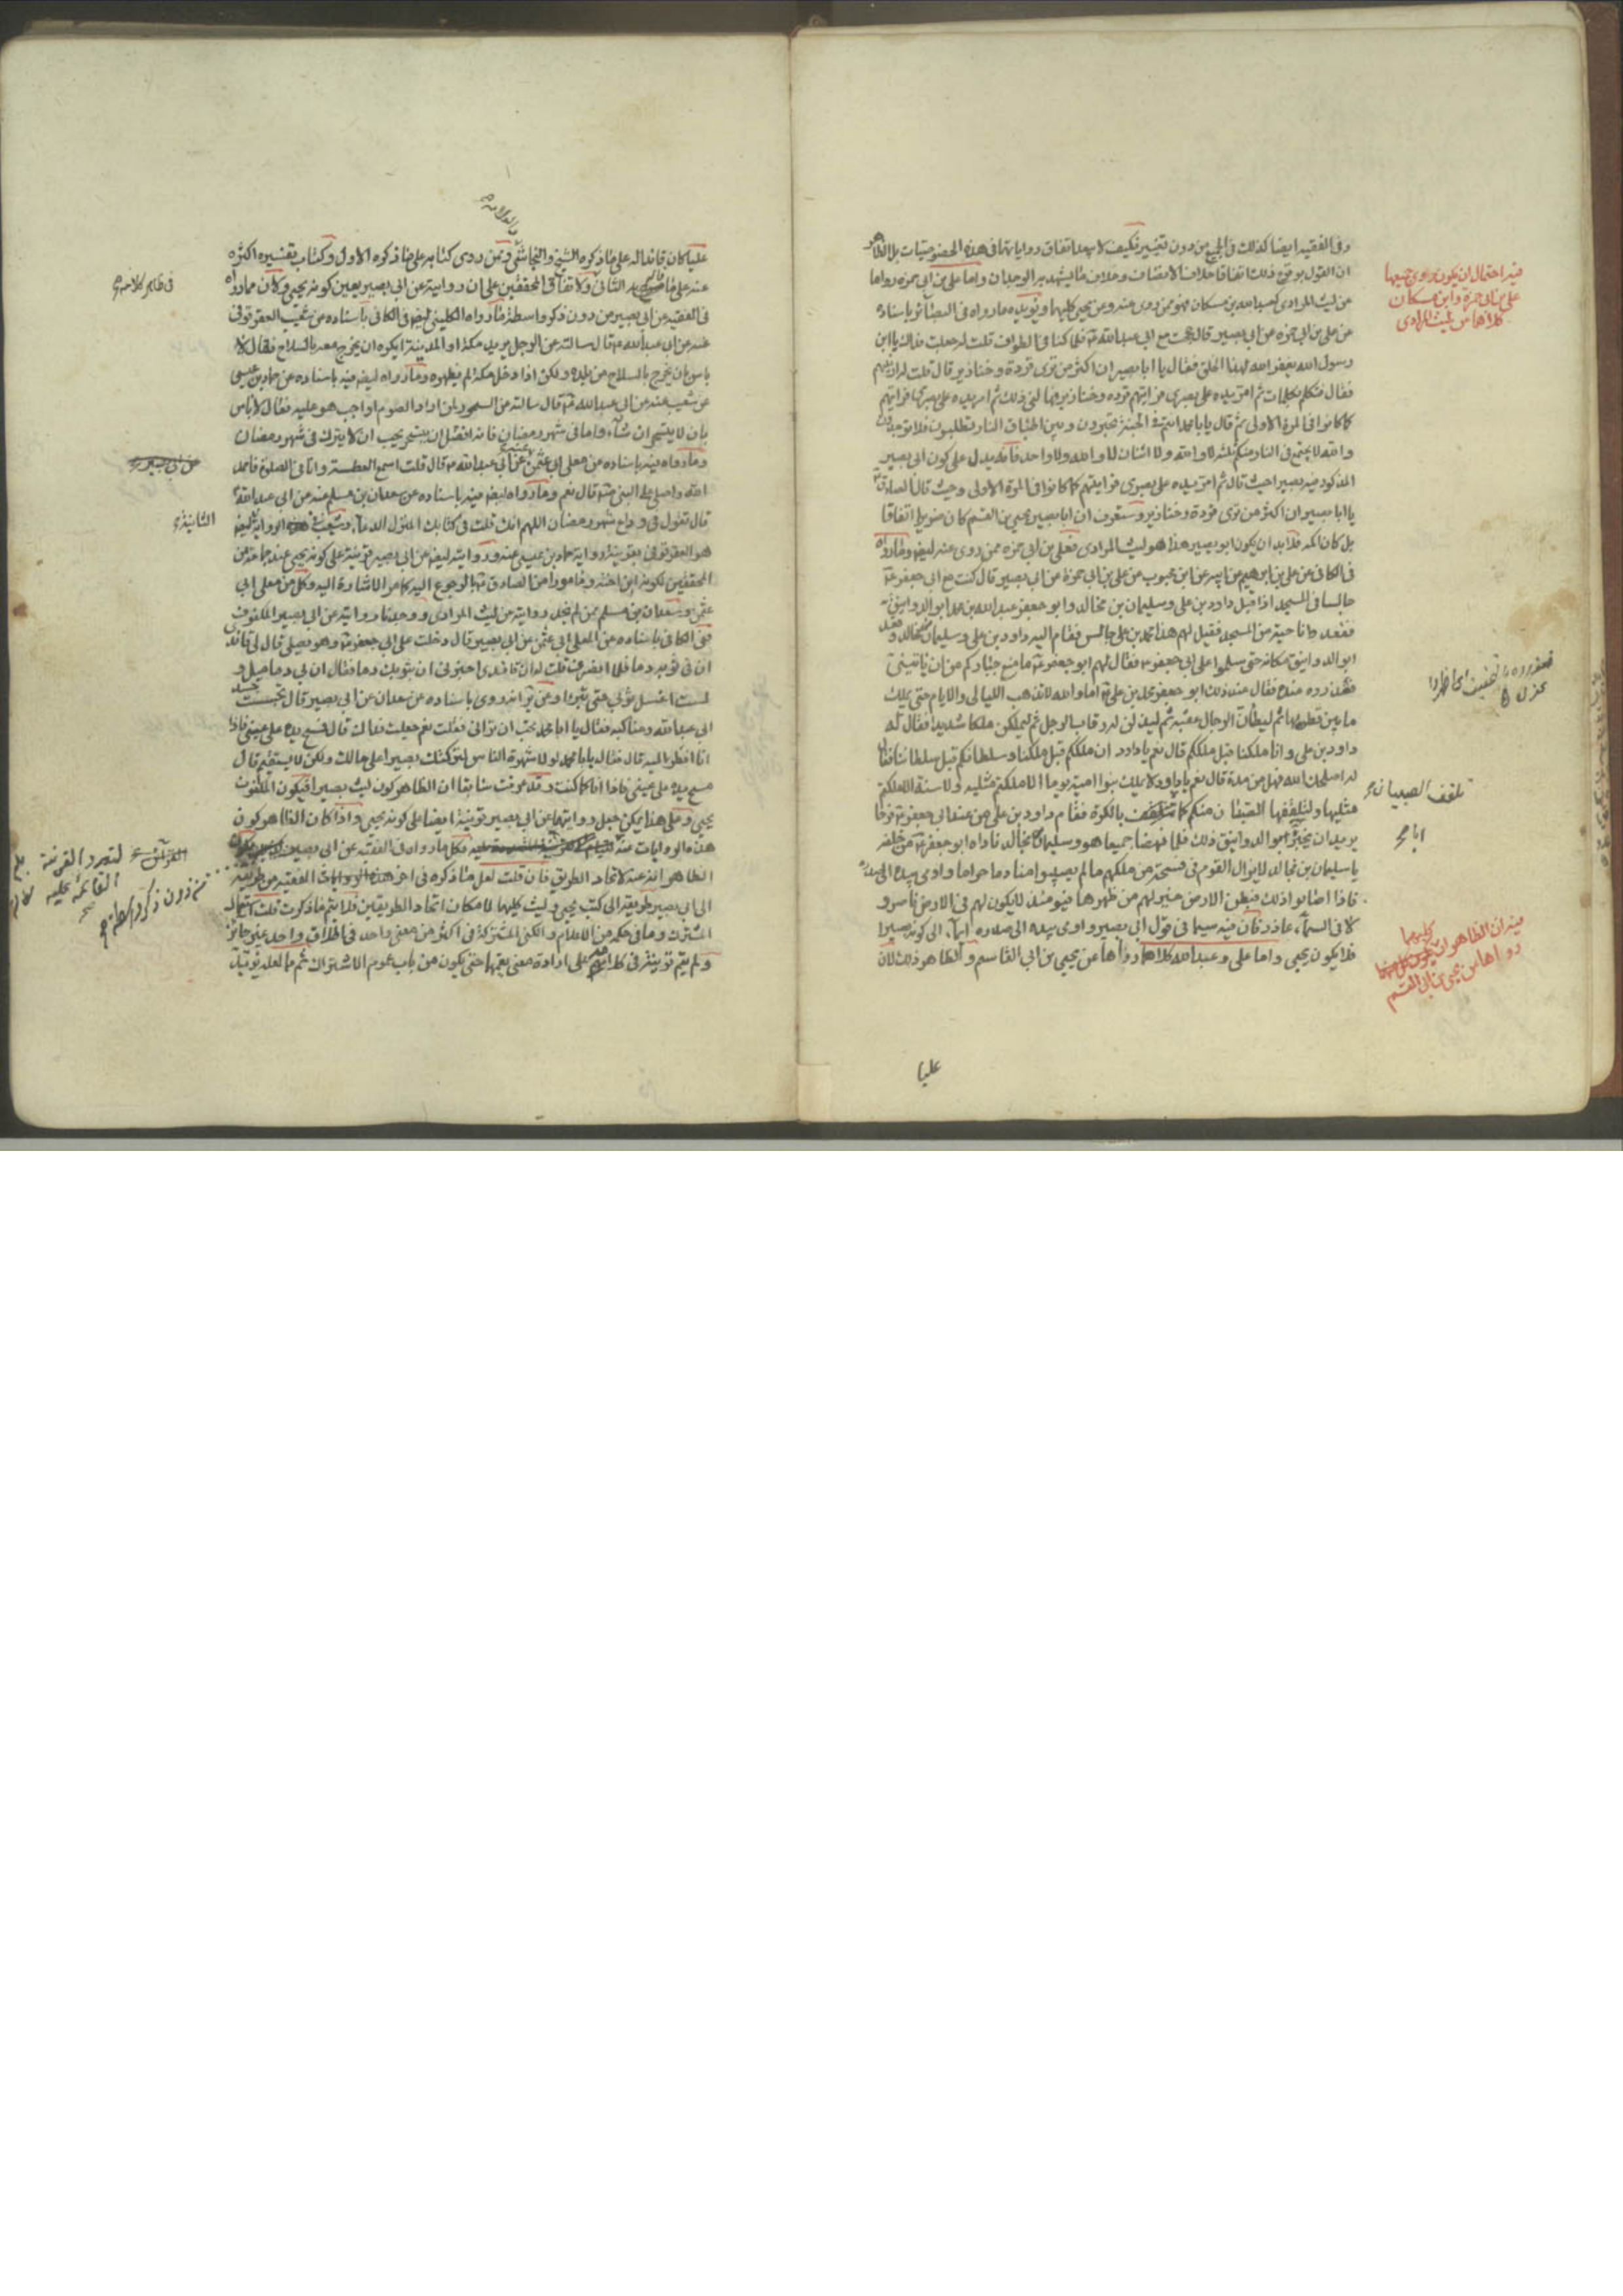 وفي الفقيه ايضا كذلك في الجميع من دون تغيير فكيف لا يبعد اتفاق رواياتهما في هذه
ان القول بوقوع ذلك اتفاقا خلاف الانصاف وخلاف ما يشهد به الوجدان واما علي بن ابي حمزه
عن ليث المرادي كعبد الله بن مسكان فهو ممن روى عنه وعن يحيى كليهما ويؤيده ما رواه في البصائر باسناده
عن علي بن ابي حمزه عن ابي بصير قال حججت مع ابي عبد الله ع فلما كنا في الطواف قلت له جعلت فداك يا ابن
رسول الله يغفر الله لهذا الخلق فقال يا ابا بصير ان اكثر من ترى قردة وخنازير قال قلت له ارنيهم
فقال فتكلم بكلمات ثم امر يده على بصري فرايتهم قرده وخنازير فهالني ذلك ثم امر يده على بصري فرايتهم
كما كانوا في المرة الاولى ثم قال يابا محمد انتم في الجنة تحبرون وبين اطباق النار تطلبون فلا توجدون
والله لا يجتمع في النار منكم ثلثه لا والله ولا اثنان لا والله ولا واحد فانه يدل على كون ابي بصير
المذكور فيه بصيرا حيث قال ثم امر يده على بصري فرايتهم كما كانوا في المرة الاولى وحيث قال الصادق ع
يا ابا بصير ان اكثر من ترى قردة وخنازير وستعرف ان ابا بصير يحيى بن القسم كان ضريرا اتفاقا
بل كان اكمه فلا بد ان يكون ابو بصير هذا هو ليث المرادي فعلي بن ابي حمزه ممن روى عنه ايضا وما رواه
في الكافي عن علي بن ابرهيم عن ابيه عن ابن محبوب عن علي بن ابي حمزة عن ابي بصير قال كنت مع ابي جعفر ع
جالسا في المسجد اذ اقبل داود بن علي وسليمان بن خالد وابو جعفر عبد الله بن محمد ابو الدوانيق
فقعدوا ناحية من المسجد فقيل لهم هذا محمد بن علي جالس فقام اليه داود بن علي وسليمان بن خالد وقعد
ابو الدوانيق مكانه حتى سلموا على ابي جعفر ع فقال لهم ابو جعفر ع ما منع جباركم من ان ياتيني
فعذروه عنده فقال عند ذلك ابو جعفر محمد بن علي ع اما والله لا تذهب الليالي والايام حتى يملك
ما بين قطريها ثم ليطأن الرجال عقبه ثم ليذلن له رقاب الرجال ثم ليملكن ملكا شديدا فقال له
داود بن علي وان ملكنا قبل ملككم قال نعم يا داود ان ملككم قبل ملكنا وسلطانكم قبل سلطاننا فقال
له اصلحك الله فهل من مدة قال نعم يا داود لا يملك بنو امية يوما الا ملكتم مثليه ولا سنة الا ملكتم
مثليها وليتلقفها الصبيان منكم كما تتلقف بالكرة فقام داود بن علي من عند ابي جعفر ع فرحا
يريد ان يخبر ابو الدوانيق ذلك فلما نهضا جميعا هو وسليمان بن خالد ناداه ابو جعفر ع من خلفه
يا سليمان بن خالد لا يزال القوم في فسحة من ملكهم ما لم يصيبوا منا دما حراما واومى بيده الى صدره
فاذا اصابوا ذلك فبطن الارض خير لهم من ظهرها فيومئذ لا يكون لهم في الارض ناصر و
لا في السماء عاذر فان فيه سيما في قول ابي بصير واومى بيده الى صدره ايماء الى كونه بصيرا
فلا يكون يحيى واما علي وعبد الله كلاهما رواها عن يحيى بن ابي القاسم والظاهر ذلك لان
عليا
فيه احتمال ان يكون مروي جميعها
علي بن ابي حمزة وابن مسكان
كلاهما من ليث المرادي
تلقف الصبيان
ابا
فيه ان الظاهر ان
كليهما
رواها من يحيى بن ابي القسم
عليا كان قائدا له على ما ذكره الشيخ والنجاشي ومن روى كتابه على ما ذكره الاول وكتاب تفسيره اكثره
عنه على ما صرح به الثاني ولاتفاق المحققين على ان روايته عن ابي بصير يعين كونه يحيى ولان ما رواه
في الفقيه عن ابي بصير من دون ذكر واسطة ما رواه الكليني ايضا في الكافي باسناده عن شعيب العقرقوفي
عنه عن ابي عبد الله ع قال سالته عن الرجل يريد مكة او المدينة ايكره ان يخرج معه بالسلاح فقال لا
باس بان يخرج بالسلاح من بلده ولكن اذا دخل مكة لم يظهره وما رواه ايضا فيه باسناده عن حماد بن عيسى
عن شعيب عنه عن ابي عبد الله ع قال سالته عن السحور لمن اراد الصوم اواجب هو عليه فقال لا باس
بان لا يتسحر ان شاء واما في شهر رمضان فانه افضل ان يتسحر يحب ان لا يترك في شهر رمضان
وما رواه فيه باسناده عن معلى ابي عثمن عن ابي عبد الله ع قال قلت اسمع العطسة وانا في الصلوة فاحمد
الله واصلي على النبي ص قال نعم وما رواه ايضا فيه باسناده عن سعدان بن مسلم عنه عن ابي عبد الله ع
قال تقول في وداع شهر رمضان اللهم انك قلت في كتابك المنزل الدعاء وشعيب في هذه الرواية ايضا
هو العقرقوفي بقرينة رواية حماد بن عيسى عنه وروايته ايضا عن ابي بصير قرينة على كونه يحيى عند جماعة من
المحققين لكونه ابن اخته ومامورا من الصادق ع بالرجوع اليه كما مر الاشارة اليه وكل من معلى ابي
عثمن وسعدان بن مسلم ممن لم نجد روايته عن ليث المرادي ووجدنا روايته عن ابي بصير المكفوف
ففي الكافي باسناده عن المعلى ابي عثمن عن ابي بصير قال دخلت على ابي جعفر ع وهو يصلي فقال لي قائدي
ان في ثوبه دما فلما انصرف قلت له ان قائدي اخبرني ان بثوبك دما فقال ان بي دماميل و
لست اغسل ثوبي حتى تبرا وعن ير انه روى باسناده عن سعدان عن ابي بصير قال تحسست جسد
ابي عبد الله ومناكبه فقال يا ابا محمد تحب ان تراني فقلت نعم جعلت فداك قال فمسح يده على عيني فاذا
انا انظر اليه قال فقال يابا محمد لولا شهرة الناس لتركتك بصيرا على حالك ولكن لا يستقيم قال
مسح يده على عيني فاذا انا كما كنت وقد عرفت سابقا ان الظاهر كون ليث بصيرا فيكون المكفوف
يحيى وعلى هذا يمكن جعل روايتهما عن ابي بصير قرينة ايضا على كونه يحيى واذا كان الظاهر كون
هذه الروايات عنه فكل ما رواه في الفقيه عن ابي بصير
الظاهر انه عنه لاتحاد الطريق فان قلت لعل ما ذكره في اخر هذه الروايات الفقيه من طريقه
الى ابي بصير طريقه الى كتب يحيى وليث كليهما لامكان اتحاد الطريقين فلا يتم ما ذكرت قلت استعمال
المشترك وما في حكمه من الاعلام والكنى المشتركة في اكثر من معنى واحد في اطلاق واحد غير جائز
ولم يقم قرينة في كلامهم على ارادة معنى يعمهما حتى يكون من باب عموم الاشتراك ثم ما لعله يؤيد
في ظاهر كلامه
الثانية
القرينة
القائمة عليه